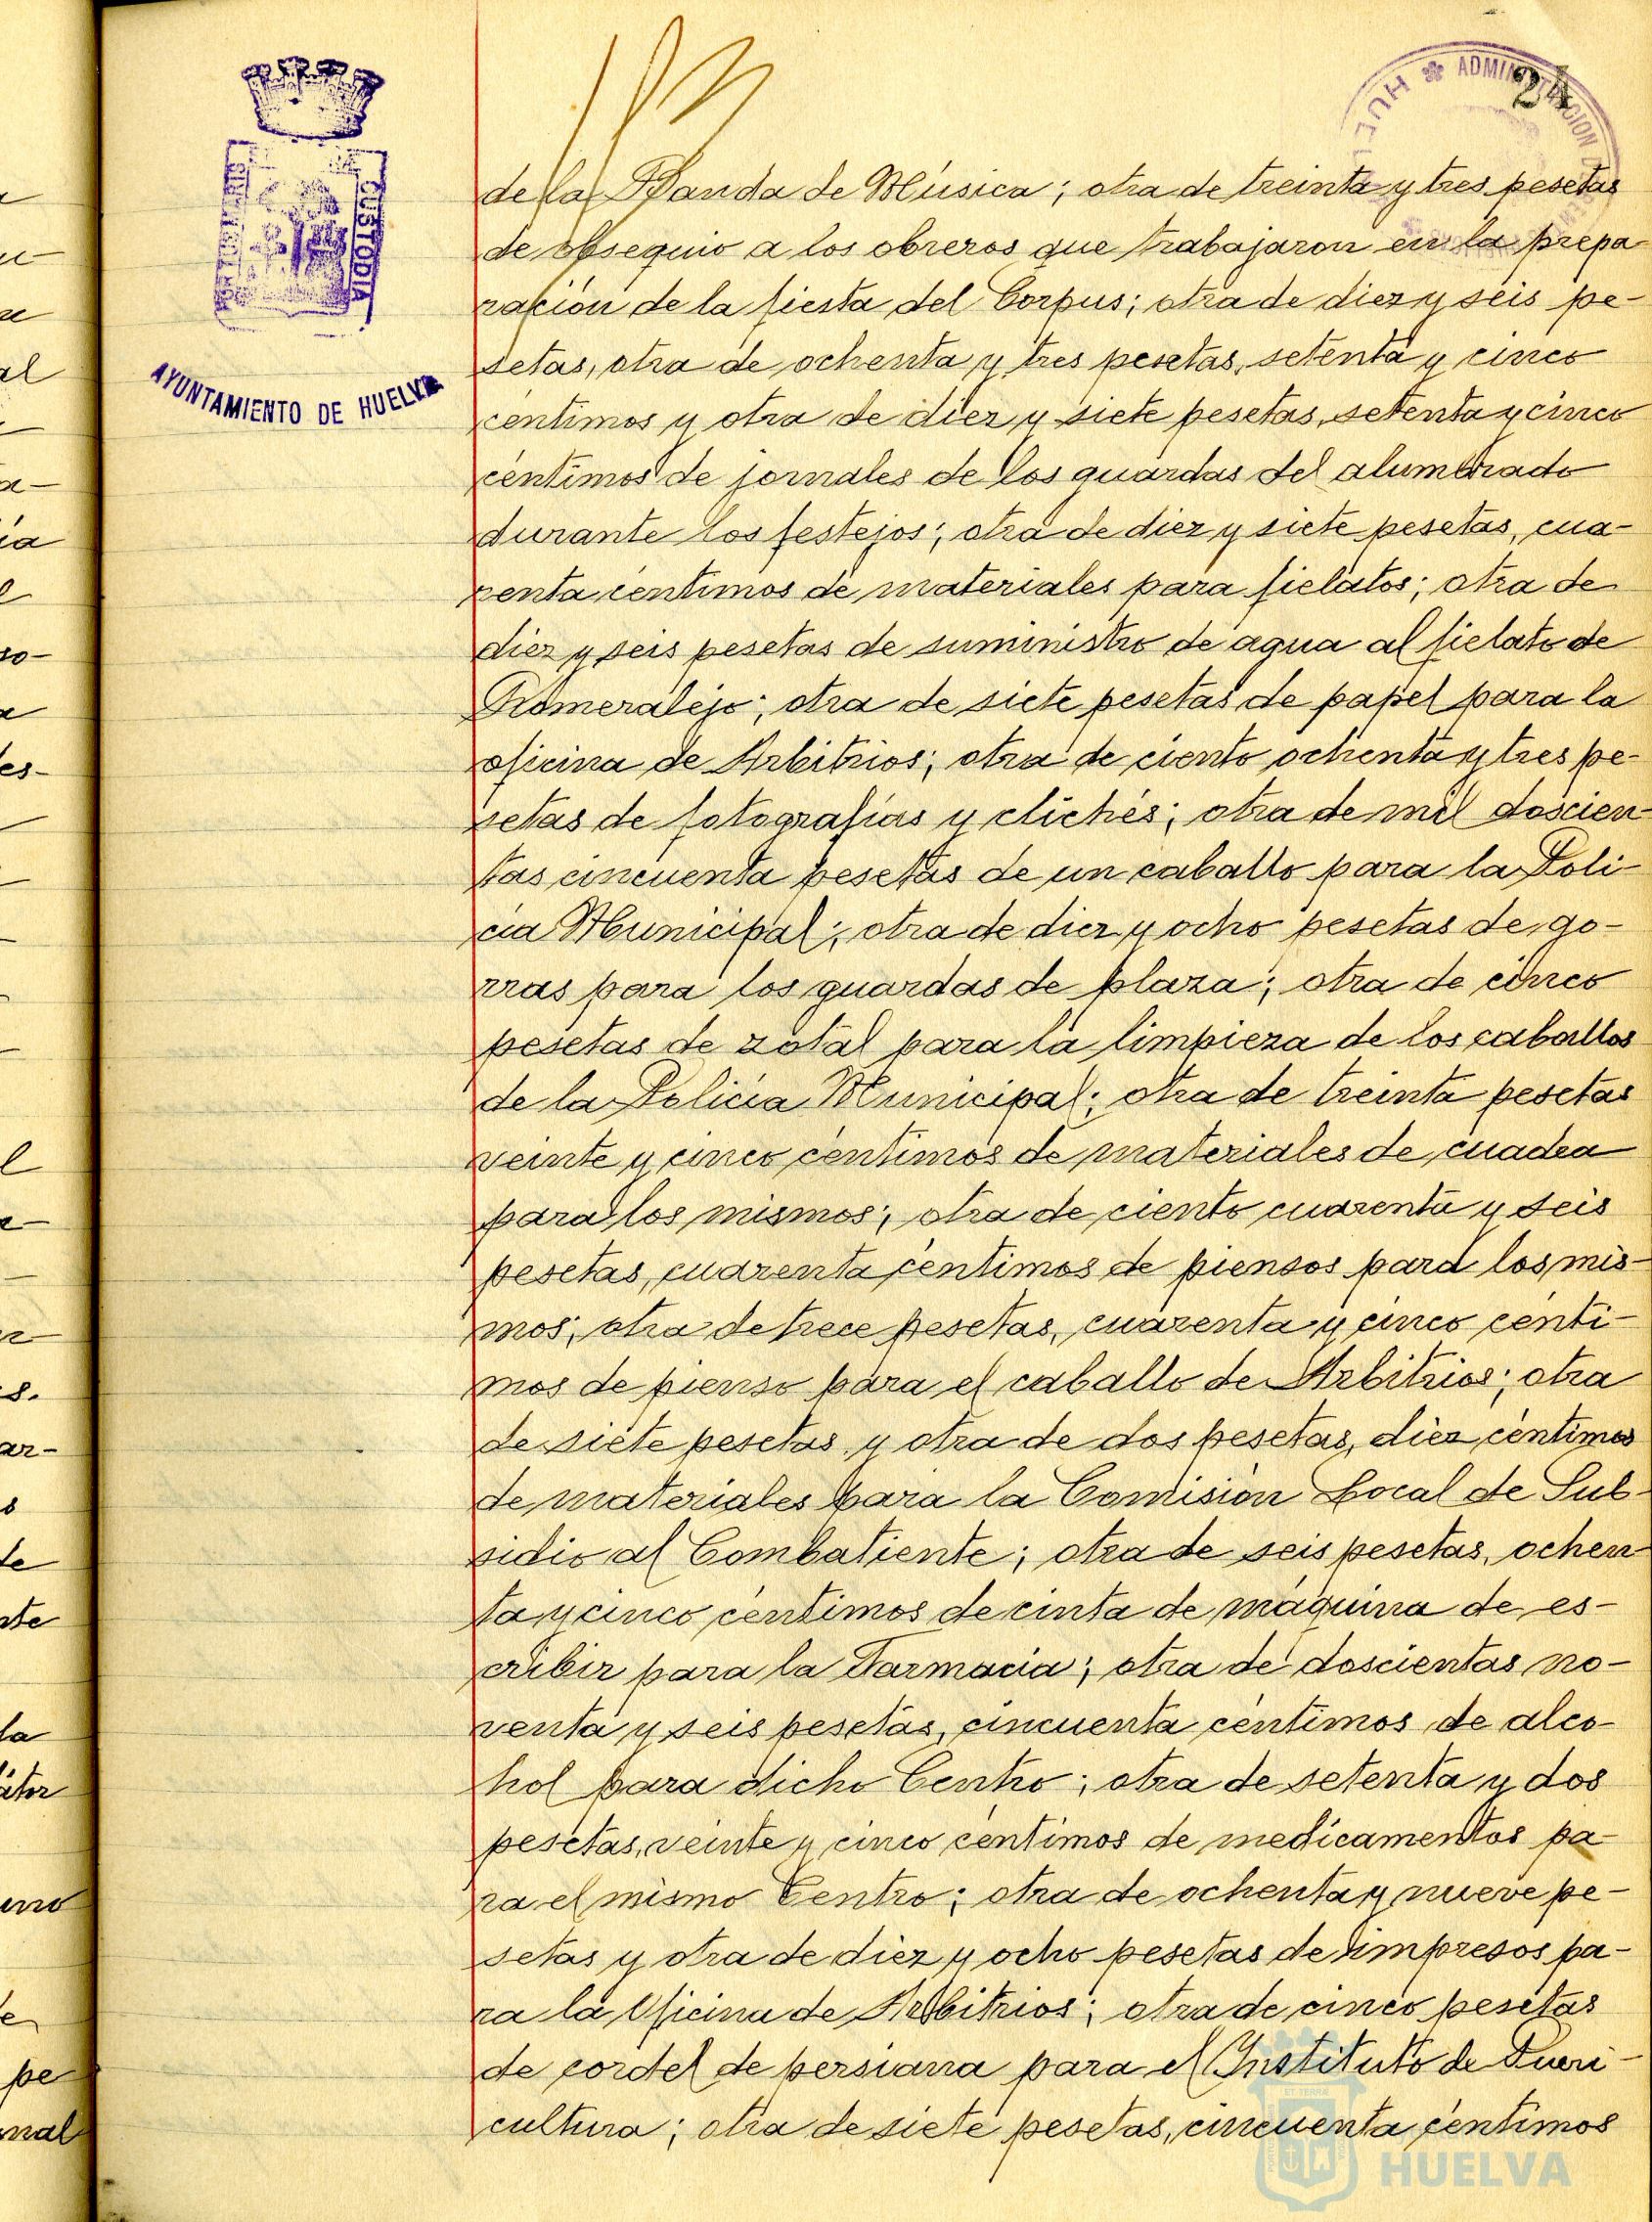 24
ADMINISTRACION
HUEL
PORTUS MARIS
CUSTODIA
AYUNTAMIENTO DE HUELVA
de la Banda de Música; otra de treinta y tres pesetas
de obsequio a los obreros que trabajaron en la prepa-
ración de la fiesta del Corpus; otra de diez y seis pe-
setas, otra de ochenta y tres pesetas, setenta y cinco
céntimos y otra de diez y siete pesetas, setenta y cinco
céntimos de jornales de los guardas del alumbrado
durante los festejos; otra de diez y siete pesetas, cua-
renta céntimos de materiales para fielatos; otra de
diez y seis pesetas de suministro de agua al fielato de
Romeralejo; otra de siete pesetas de papel para la
oficina de Arbitrios; otra de ciento ochenta y tres pe-
setas de fotografías y clichés; otra de mil doscien-
tas cincuenta pesetas de un caballo para la Poli-
cía Municipal; otra de diez y ocho pesetas de go-
rras para los guardas de plaza; otra de cinco
pesetas de zotal para la limpieza de los caballos
de la Policía Municipal; otra de treinta pesetas
veinte y cinco céntimos de materiales de cuadra
para los mismos; otra de ciento cuarenta y seis
pesetas, cuarenta céntimos de piensos para los mis-
mos; otra de trece pesetas, cuarenta y cinco cénti-
mos de pienso para el caballo de Arbitrios; otra
de siete pesetas y otra de dos pesetas, diez céntimos
de materiales para la Comisión Local de Sub-
sidio al Combatiente; otra de seis pesetas, ochen-
ta y cinco céntimos de cinta de máquina de es-
cribir para la Farmacia; otra de doscientas no-
venta y seis pesetas, cincuenta céntimos de alco-
hol para dicho Centro; otra de setenta y dos
pesetas, veinte y cinco céntimos de medicamentos pa-
ra el mismo Centro; otra de ochenta y nueve pe-
setas y otra de diez y ocho pesetas de impresos pa-
ra la Oficina de Arbitrios; otra de cinco pesetas
de cordel de persiana para el Instituto de Pueri-
cultura; otra de siete pesetas, cincuenta céntimos
HUELVA